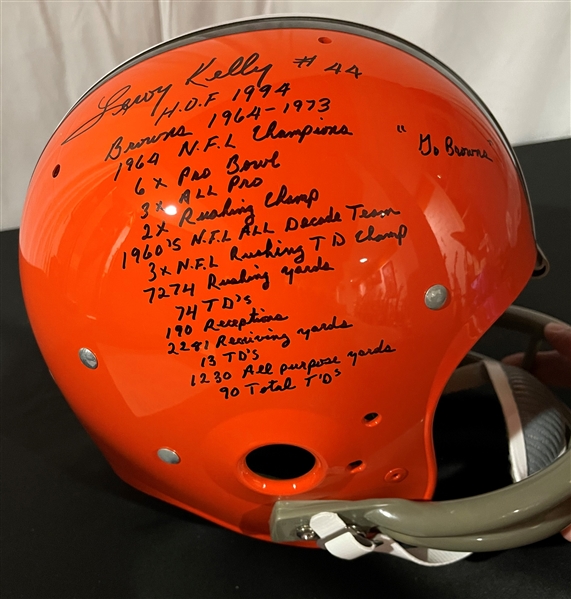 Leroy Kelly #44
H.O.F 1994
Browns 1964-1973
1964 N.F.L Champions
6x Pro Bowl
3x ALL Pro
2x Rushing Champ
1960's N.F.L ALL Decade Team
3x N.F.L Rushing TD Champ
7274 Rushing yards
74 TD's
190 Receptions
2281 Receiving yards
13 TD's
1230 All purpose yards
90 Total TD's
"Go Browns"